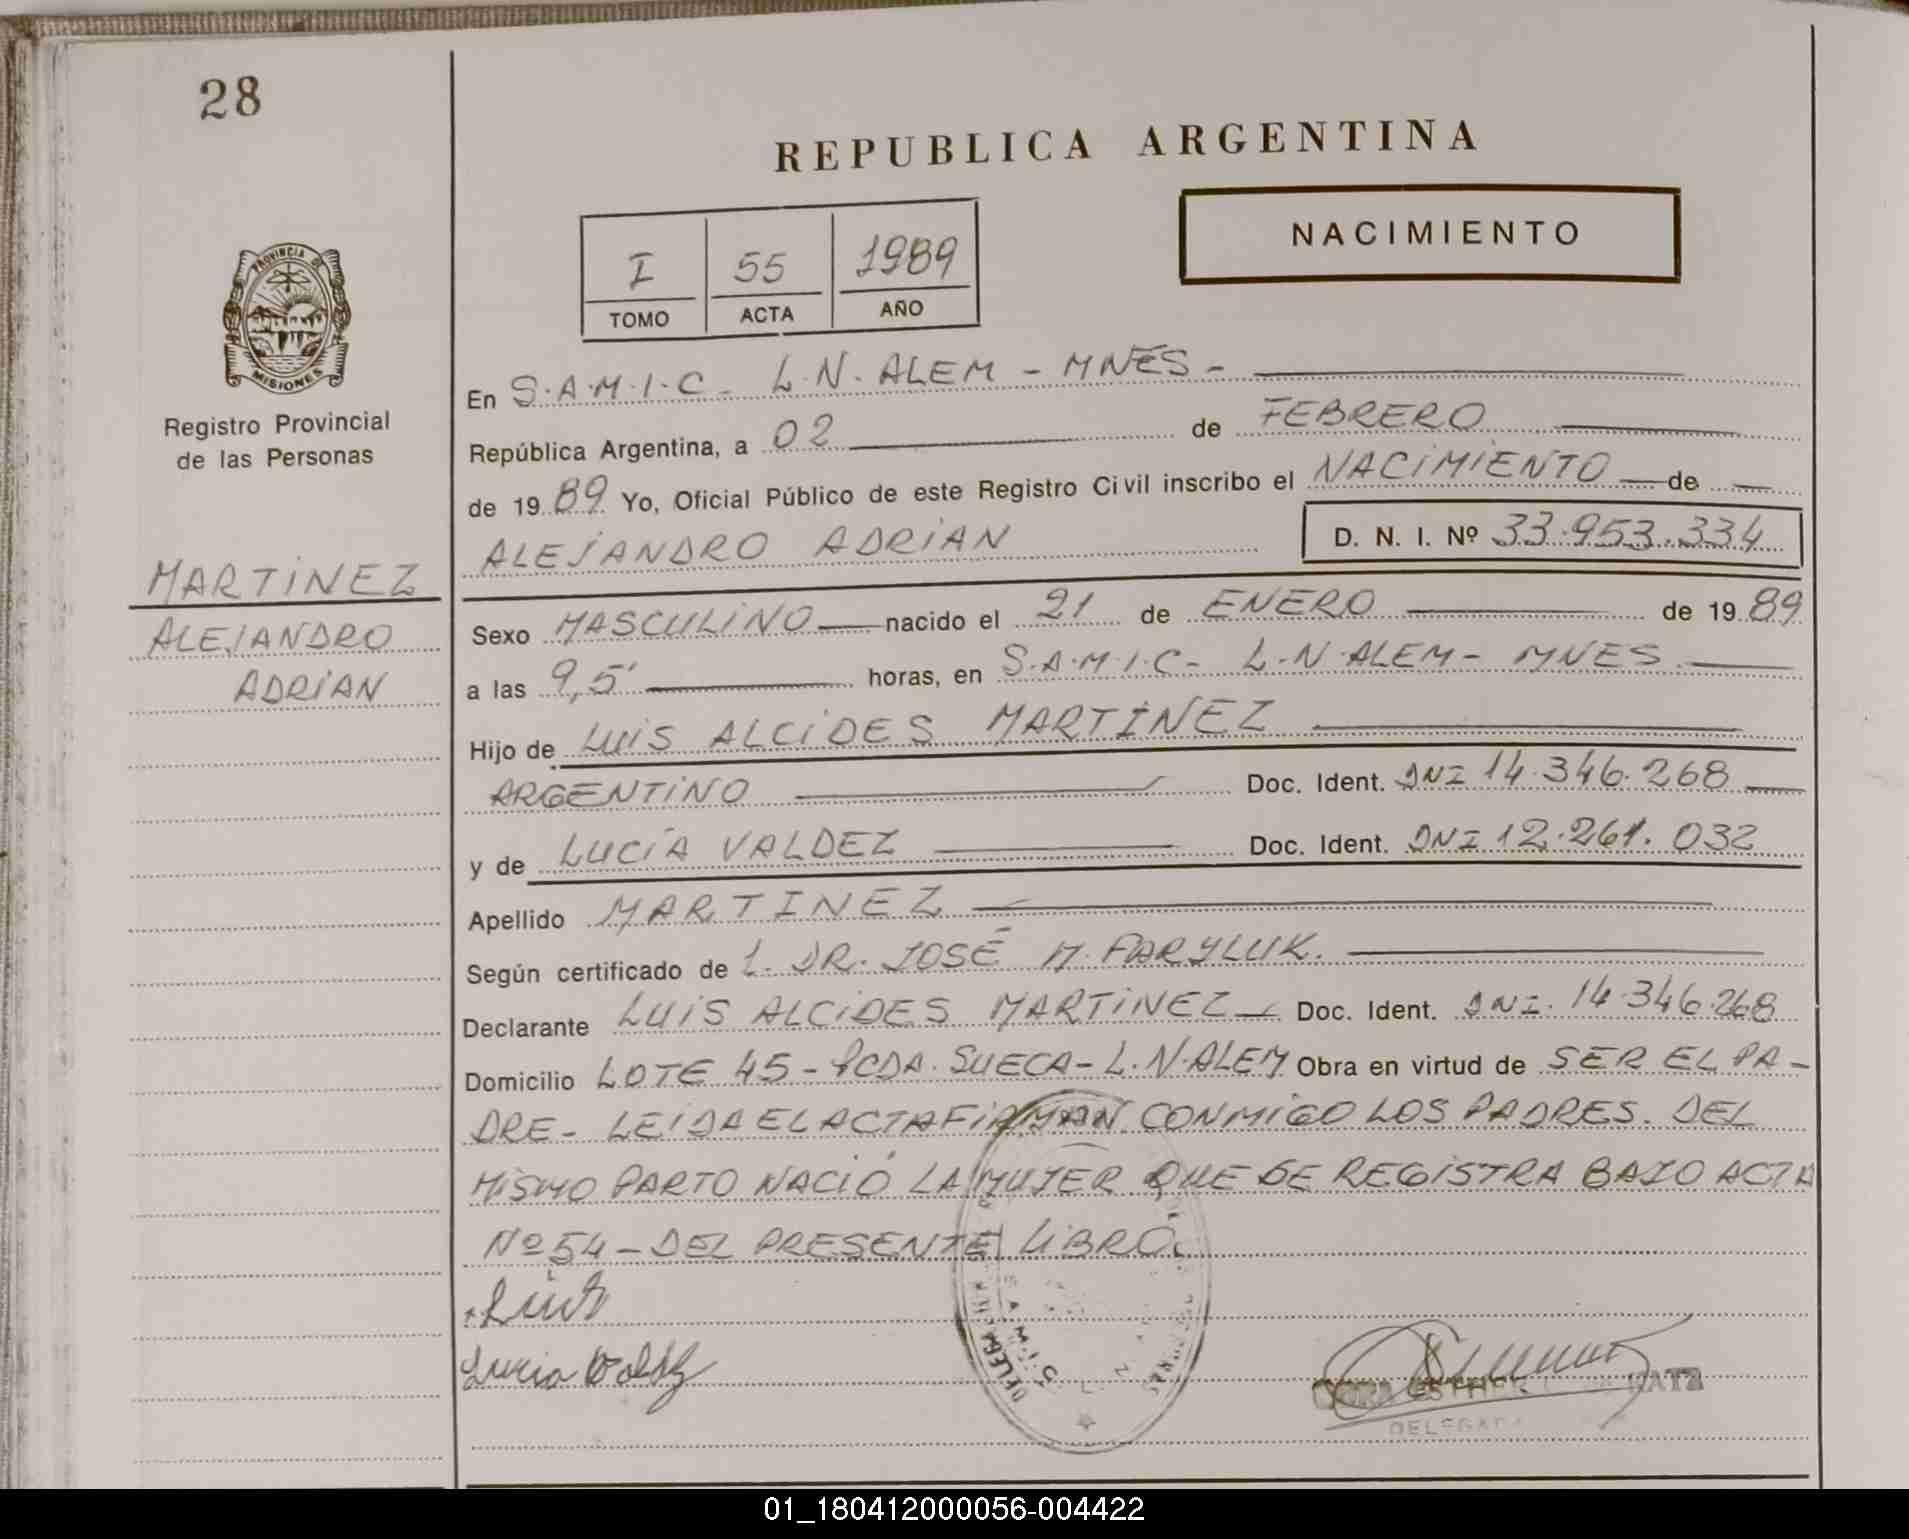 28
REPUBLICA ARGENTINA
NACIMIENTO
I 55 1989
TOMO ACTA AÑO
PROVINCIA DE
MISIONES
Registro Provincial
de las Personas
MARTINEZ
ALEJANDRO
ADRIAN
En S.A.M.I.C - L.N. ALEM - MNES -
República Argentina, a 02 de FEBRERO
de 1989 Yo, Oficial Público de este Registro Civil inscribo el NACIMIENTO de
ALEJANDRO ADRIAN D. N. I. Nº 33.953.334
Sexo MASCULINO nacido el 21 de ENERO de 1989
a las 9,5' horas, en S.A.M.I.C- L.N ALEM- MNES
Hijo de LUIS ALCIDES MARTINEZ
ARGENTINO Doc. Ident. DNI 14.346.268
y de LUCÍA VALDEZ Doc. Ident. DNI 12.261.032
Apellido MARTINEZ
Según certificado de L. DR. JOSÉ M. FARYLUK.
Declarante LUIS ALCIDES MARTINEZ Doc. Ident. DNI. 14.346.268
Domicilio LOTE 45 - PCDA. SUECA - L.N.ALEM Obra en virtud de SER EL PA-
DRE - LEIDA EL ACTA FIRMAN CONMIGO LOS PADRES. DEL
MISMO PARTO NACIÓ LA MUJER QUE SE REGISTRA BAJO ACTA
Nº 54 - DEL PRESENTE LIBRO.
Luis
Lucia Valdz
S.A.M.I.C.
ESTHER
DELEGADA
01_180412000056-004422